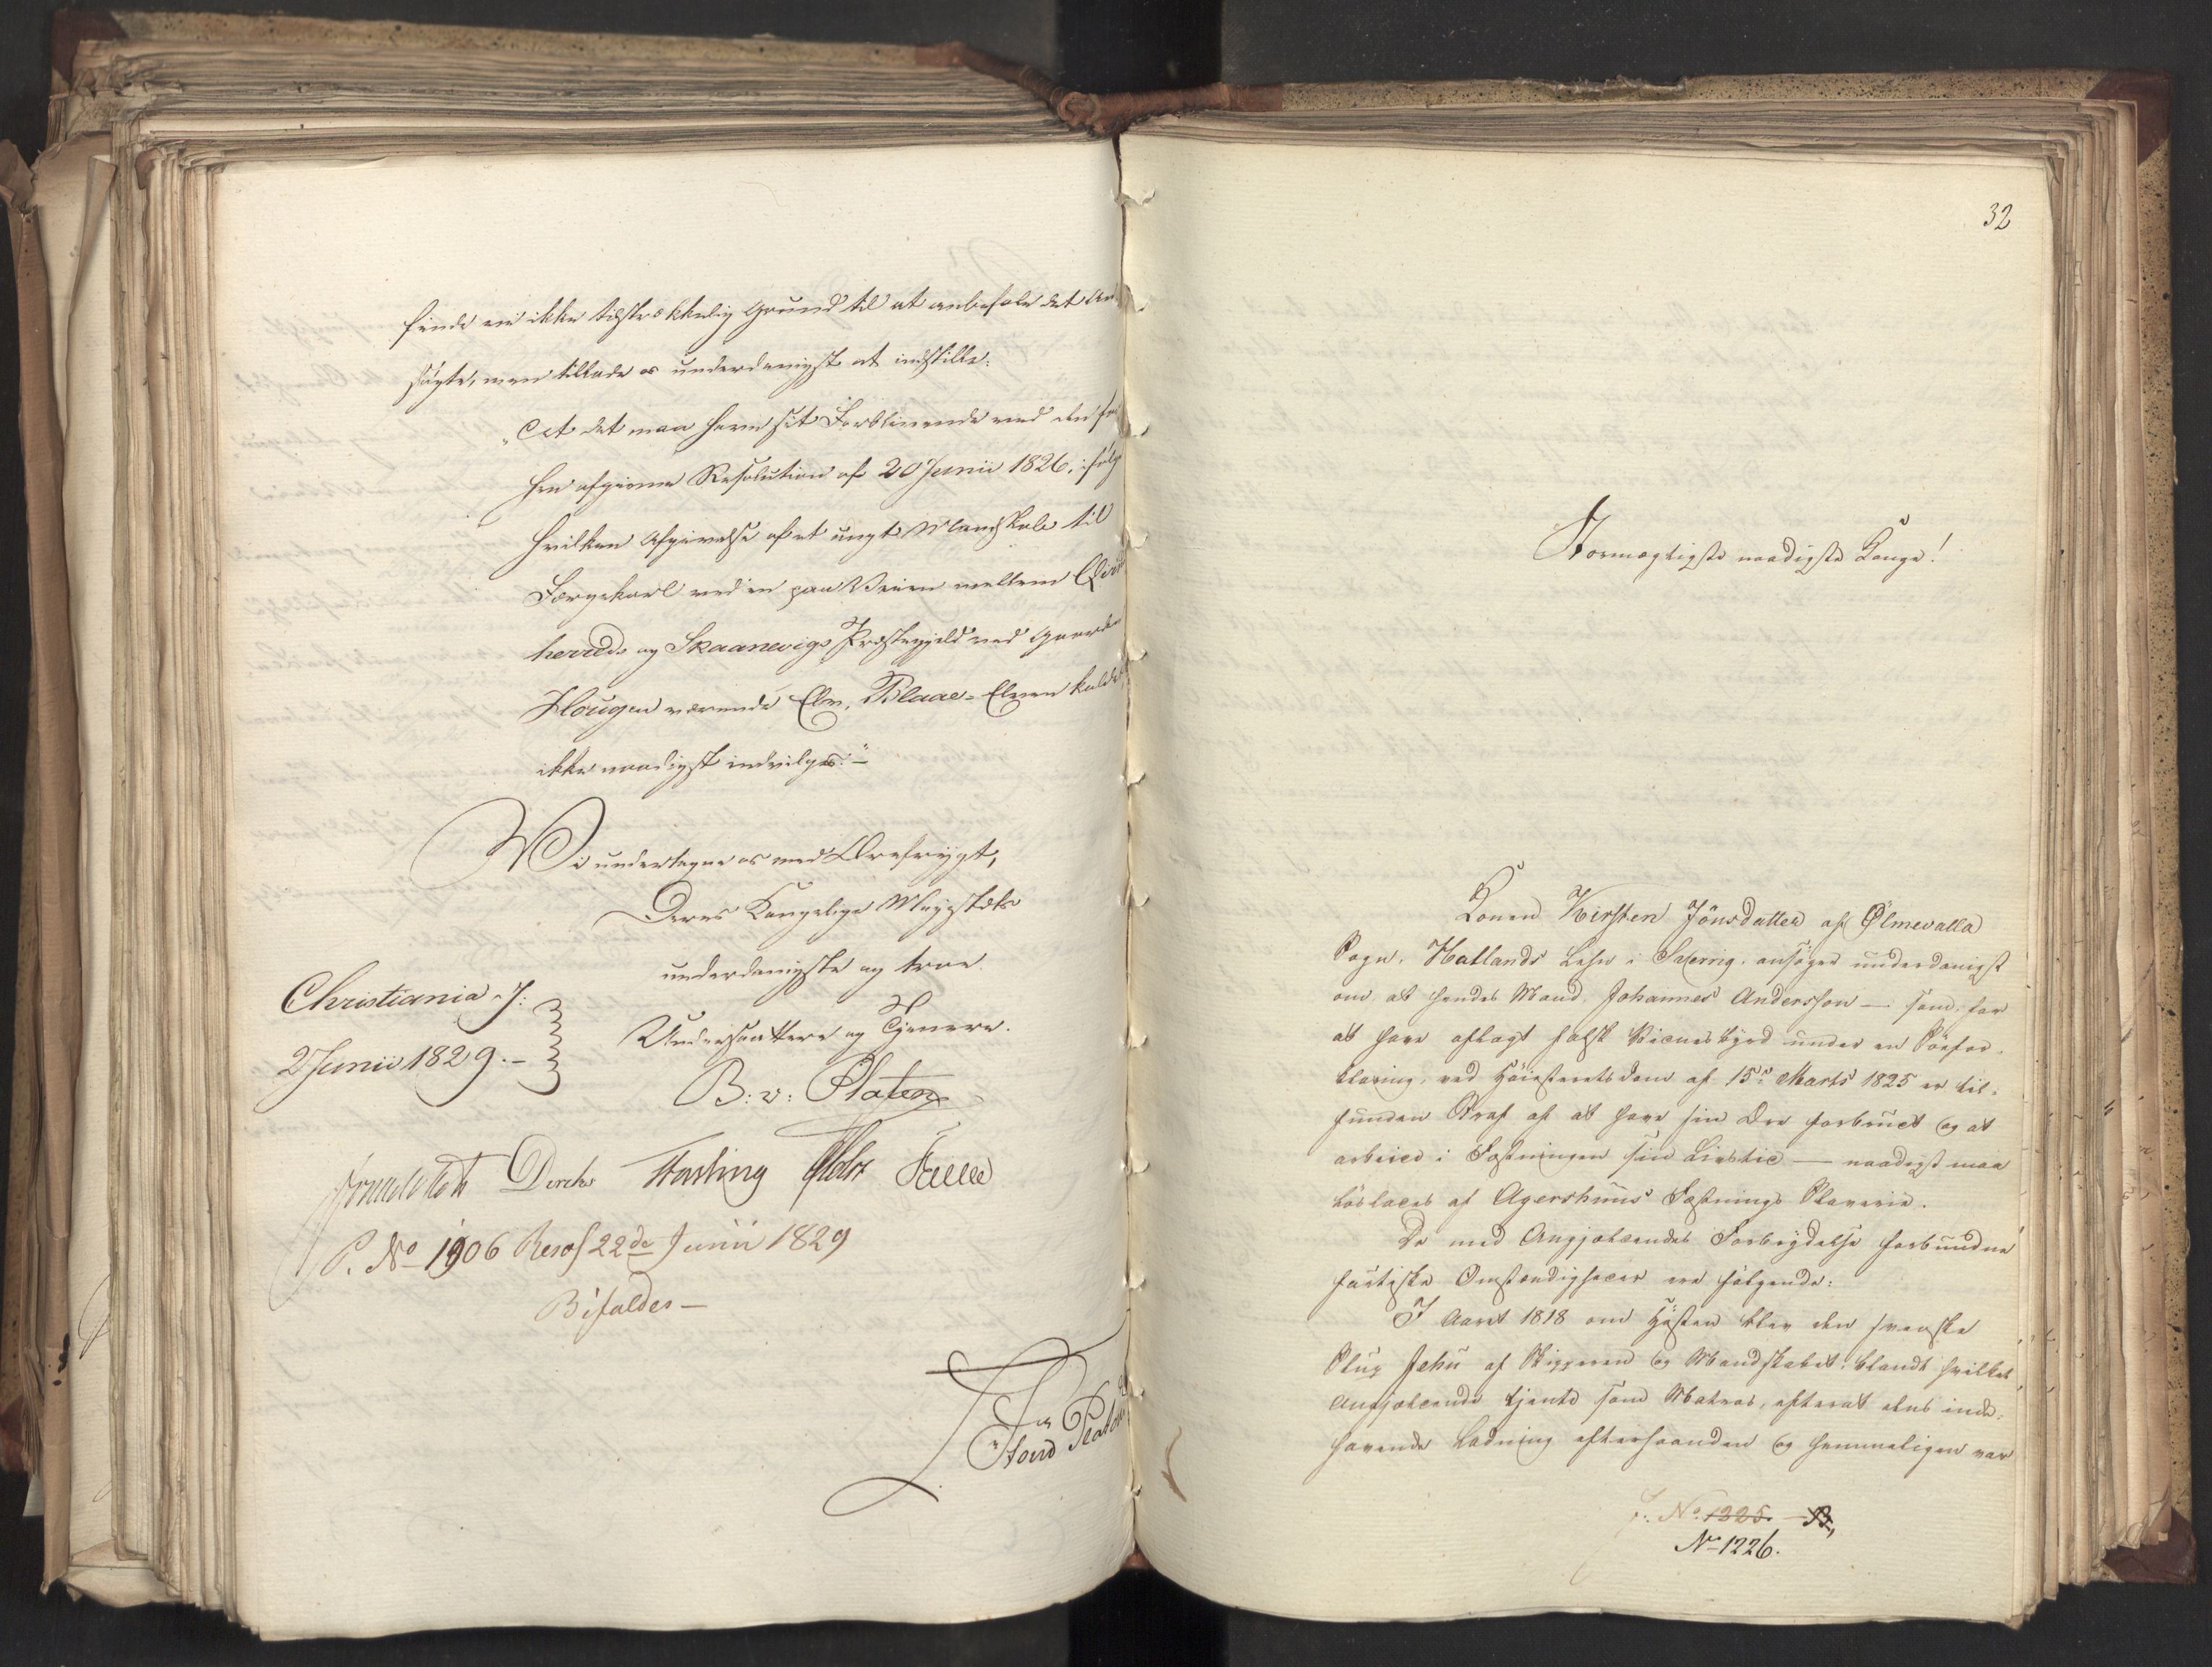 finde vi ikke tilstrækkelig Grund til at anbefale det An
søgte, men tillade os underdanigst at indstille:
„At det maa have sit Forblivende ved den for
hen afgivne Resolution af 20 Junii 1826, ifølg
hvilken Afgivelse af et ungt Mandskab til
Færgekarl ved en paa Veien mellem Qvin
herreds og Skaanevigs Præstegjeld ved Gaarden
Hougen værende Elv, Blaae-Elven kaldet
ikke naadigst indvilges.“ —
Vi undertegne os med Ærefrygt,
Deres Kongelige Majestæts
underdanigste og troe
Christiania d. J:
Undersaattere og Tjenere.
2 Junii 1829. —
B: v: Platen
Diriks Fasting Holst Falsen
P. No 1906 Resol 22de Junii 1829
Bifaldes —
32
Stormægtigste naadigste Konge!
Konen Kirsten Jönsdatter af Ølmevalla
Sogn, Hallands Lehn i Sverrig, ansøger underdanigst
om, at hendes Mand, Johannes Andersson — som, for
at have aflagt falsk Vidnesbyrd under en Söefor-
klaring, ved Høiesteretsdom af 15de Marts 1825 er til-
funden Straf af at have sin Ære forbrudt og at
arbeide i Fæstningen sin Livstid — naadigst maa
løslades af Agershuus Fæstnings Slaverie.
De med Angjældendes Forbrydelse forbundne
factiske Omstændigheder ere følgende:
I Aaret 1818 om Høsten blev den svenske
Slup Jehu af Skipperen og Mandskabet, blandt hvilket
Angjældende tjente som Matros, efterat dens inde-
havende Ladning efterhaanden og hemmeligen var
J: No 1325.
No 1226.